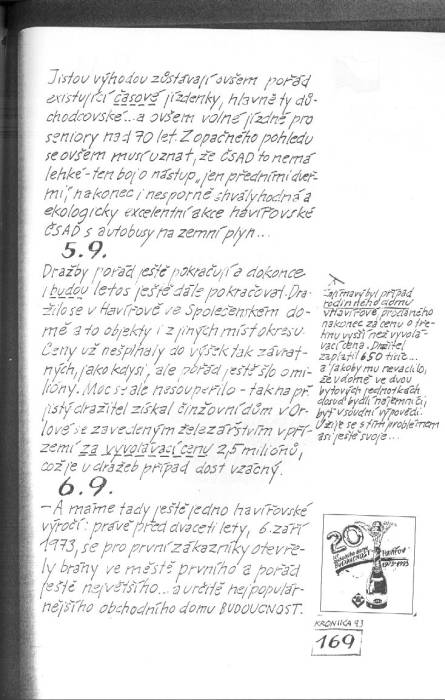 Jistou výhodou zůstávají ovšem pořád
existující časové jízdenky, hlavně ty dů-
chodcovské... a ovšem volné jízdné pro
seniory nad 70 let. Z opačného pohledu
se ovšem musí uznat, že ČSAD to nemá
lehké - ten boj o nástup „jen předními dveř-
mi", nakonec i nesporně chvályhodná a
ekologicky excelentní akce havířovské
ČSAD s autobusy na zemní plyn...
5.9.
Dražby pořád ještě pokračují a dokonce
i budou letos ještě dále pokračovat. Dra-
žilo se v Havířově ve Společenském do-
mě a to objekty i z jiných míst okresu.
Ceny už nešplhaly do výšek tak závrat-
ných, jako kdysi, ale pořád ještě šlo o mi-
lióny. Moc se ale nesoupeřilo - tak na př
jistý dražitel získal činžovní dům v Or-
lové se zavedeným železářstvím v pří-
zemí za vyvolávací cenu 2,5 miliónů,
což je u dražeb případ dost vzácný.
Zajímavý byl případ
rodinného domu
v Havířově prodaného
nakonec za cenu o tře-
tinu vyšší než vyvolá-
vací cena. Dražitel
zaplatil 650 tisíc...
a jakoby mu nevadilo,
že v domě ve dvou
bytových jednotkách
dosud bydlí nájemníci,
byť v soudní výpovědi.
Užije se s tím problémem
asi ještě svoje...
6.9.
- A máme tady ještě jedno havířovské
výročí: právě před dvaceti lety, 6. září
1973, se pro první zákazníky otevře-
ly brány ve městě prvního a pořád
ještě největšího... a určitě nejpopulár-
nějšího obchodního domu BUDOUCNOST.
20
BUDOUCNOST
HAVÍŘOV
1973-1993
KRONIKA 93
169